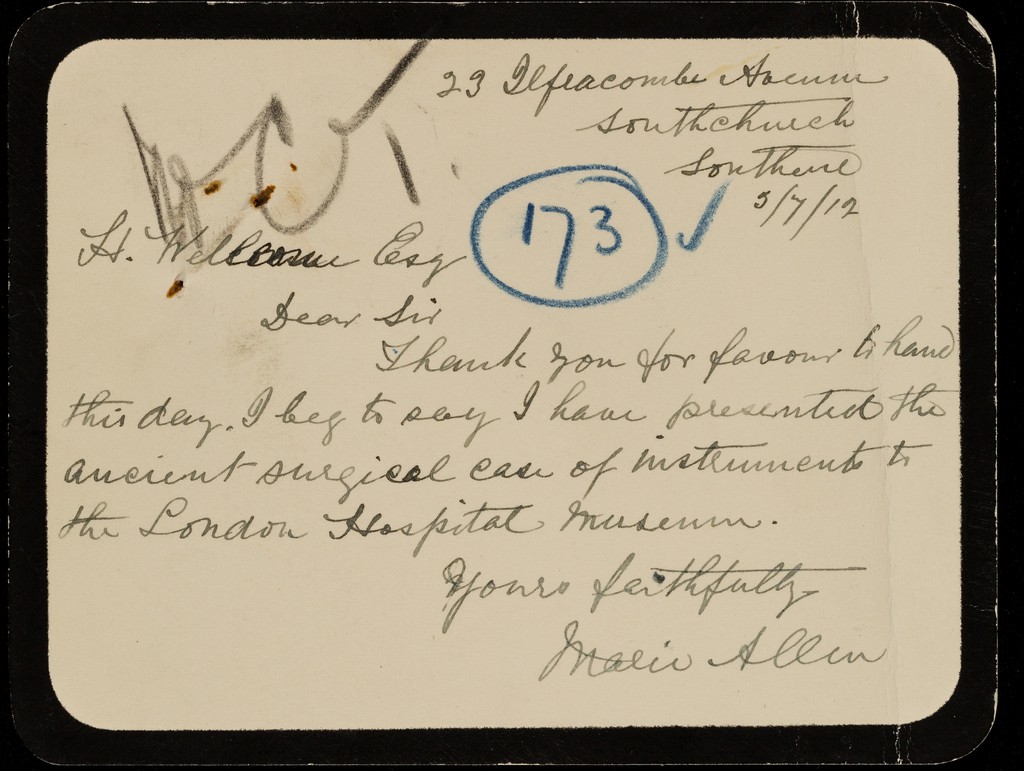 23 Ilfracombe Avenue
Southchurch
Southend
3/7/12
173
H. Wellcome Esq
Dear Sir
Thank you for favour to hand
this day. I beg to say I have presented the
ancient surgical case of instruments to
the London Hospital Museum.
Yours faithfully
Marie Allen